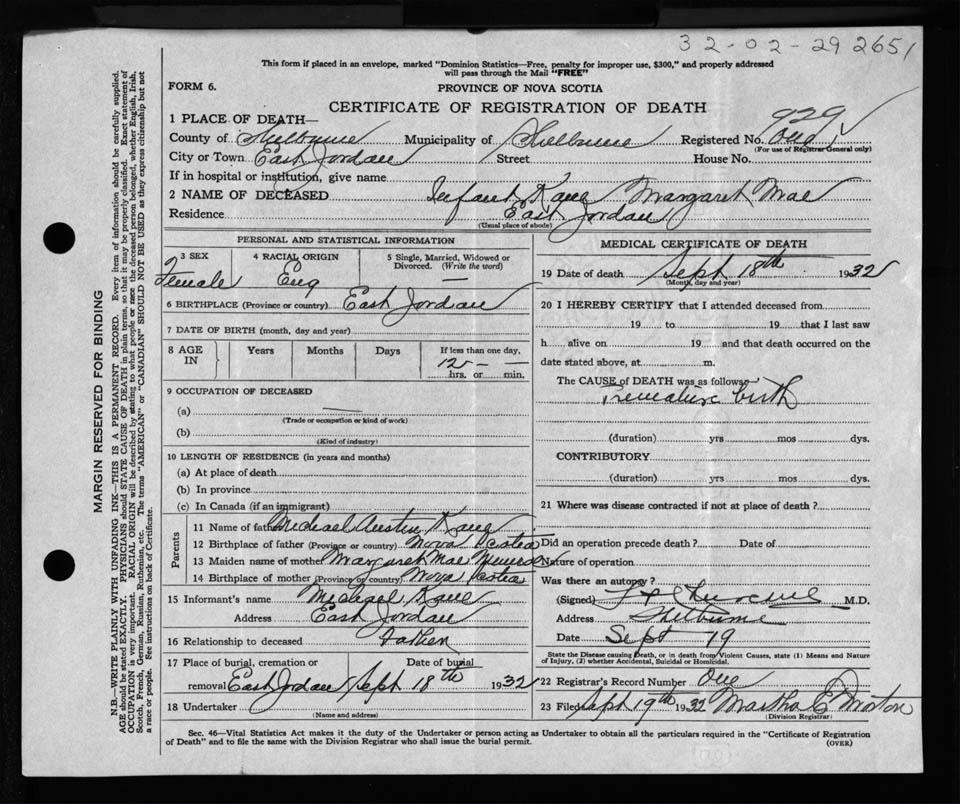 32-02-29 2651
This form if placed in an envelope, marked "Dominion Statistics—Free, penalty for improper use, $300," and properly addressed
will pass through the Mail "FREE"
FORM 6.
PROVINCE OF NOVA SCOTIA
CERTIFICATE OF REGISTRATION OF DEATH
929
1 PLACE OF DEATH—
County of Shelburne Municipality of Shelburne Registered No. One
(For use of Registrar General only)
City or Town East Jordan Street House No.
If in hospital or institution, give name
2 NAME OF DECEASED Infant Kane Margaret Mae
Residence East Jordan
(Usual place of abode)
PERSONAL AND STATISTICAL INFORMATION
3 SEX 4 RACIAL ORIGIN 5 Single, Married, Widowed or Divorced. (Write the word)
Female Eng —
6 BIRTHPLACE (Province or country) East Jordan
7 DATE OF BIRTH (month, day and year)
8 AGE IN Years Months Days If less than one day,
12 — —
hrs. or min.
9 OCCUPATION OF DECEASED
(a) —
(Trade or occupation or kind of work)
(b)
(Kind of industry)
10 LENGTH OF RESIDENCE (in years and months)
(a) At place of death
(b) In province
(c) In Canada (if an immigrant)
Parents
11 Name of father Michael Austin Kane
12 Birthplace of father (Province or country) Nova Scotia
13 Maiden name of mother Margaret Mae
14 Birthplace of mother (Province or country) Nova Scotia
15 Informant's name Michael Kane
Address East Jordan
16 Relationship to deceased Father
17 Place of burial, cremation or Date of burial
removal East Jordan Sept 18th 1932
18 Undertaker
(Name and address)
MEDICAL CERTIFICATE OF DEATH
19 Date of death Sept 18th 1932
(Month, day and year)
20 I HEREBY CERTIFY that I attended deceased from
19 to 19 that I last saw
h alive on 19 and that death occurred on the
date stated above, at m.
The CAUSE of DEATH was as follows
Premature birth
(duration) yrs mos dys.
CONTRIBUTORY
(duration) yrs mos dys.
21 Where was disease contracted if not at place of death?
Did an operation precede death? Date of
Nature of operation
Was there an autopsy?
(Signed) M.D.
Address Shelburne
Date Sept 19
State the Disease causing Death, or in death from Violent Causes, state (1) Means and Nature
of Injury, (2) whether Accidental, Suicidal or Homicidal.
22 Registrar's Record Number One
23 Filed Sept 19th 1932 Martha E Morton
(Division Registrar)
Sec. 46—Vital Statistics Act makes it the duty of the Undertaker or person acting as Undertaker to obtain all the particulars required in the "Certificate of Registration
of Death" and to file the same with the Division Registrar who shall issue the burial permit.
(OVER)
MARGIN RESERVED FOR BINDING
N.B.—WRITE PLAINLY WITH UNFADING INK—THIS IS A PERMANENT RECORD. Every item of information should be carefully supplied.
AGE should be stated EXACTLY. PHYSICIANS should STATE CAUSE OF DEATH in plain terms, so that it may be properly classified. Exact statement of
OCCUPATION is very important. RACIAL ORIGIN will be described by stating to what people or race the deceased person belonged, whether English, Irish,
Scotch, French, German, Russian, Ruthenian, etc. The terms "AMERICAN" or "CANADIAN" SHOULD NOT BE USED as they express citizenship but not
a race or people. See instructions on back of Certificate.